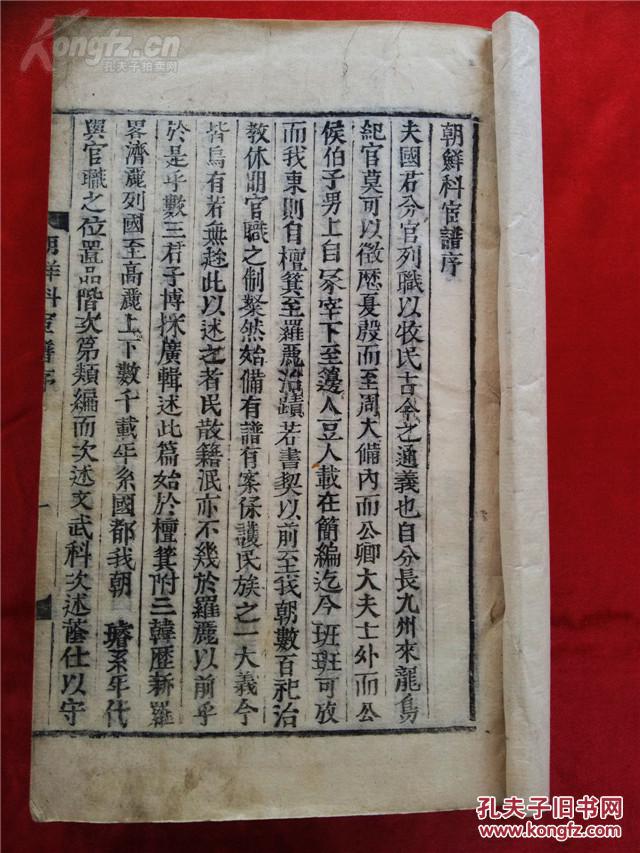 Kongfz.cn
孔夫子拍卖网
朝鮮科宦譜序
夫國君分官列職以牧民古今之通義也自分長九州來龍鳥
紀官莫可以徵歷夏殷而至周大備內而公卿大夫士外而公
侯伯子男上自冢宰下至籩人豆人載在簡編迄今班班可攷
而我東則自檀箕至羅麗治蹟若書契以前至我朝數百祀治
教休明官職之制粲然始備有譜有案保護民族之一大義今
皆烏有若無趂此以述之者民散籍泯亦不幾於羅麗以前乎
於是乎數三君子博採廣輯述此篇始於檀箕附三韓歷新羅
畧濟麗列國至高麗上下數千載年系國都我朝 璿系年代
與官職之位置品階次第類編而次述文武科次述蔭仕以守
朝鮮科宦譜序
一
孔夫子旧书网
www.kongfz.com